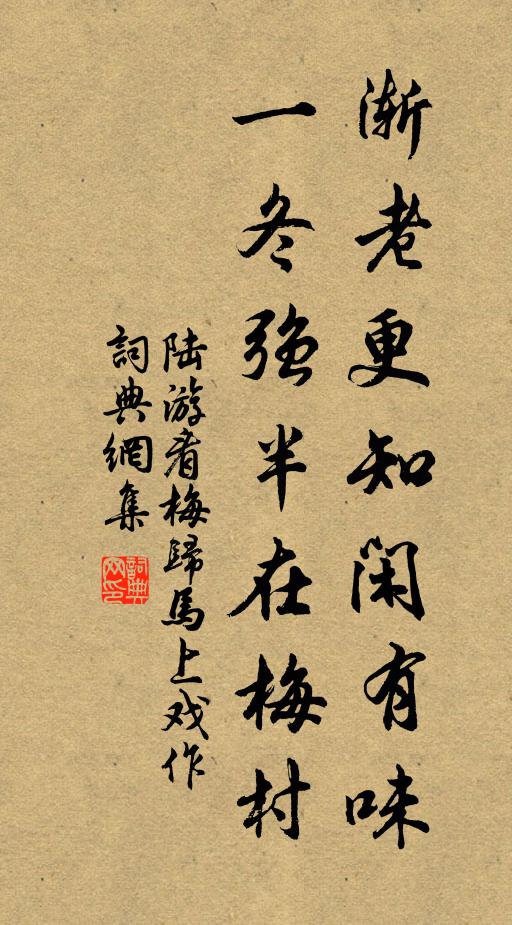 渐老更知闲有味
一冬强半在梅村
陆游看梅歸馬上戏作
詞典網集
詞典网印